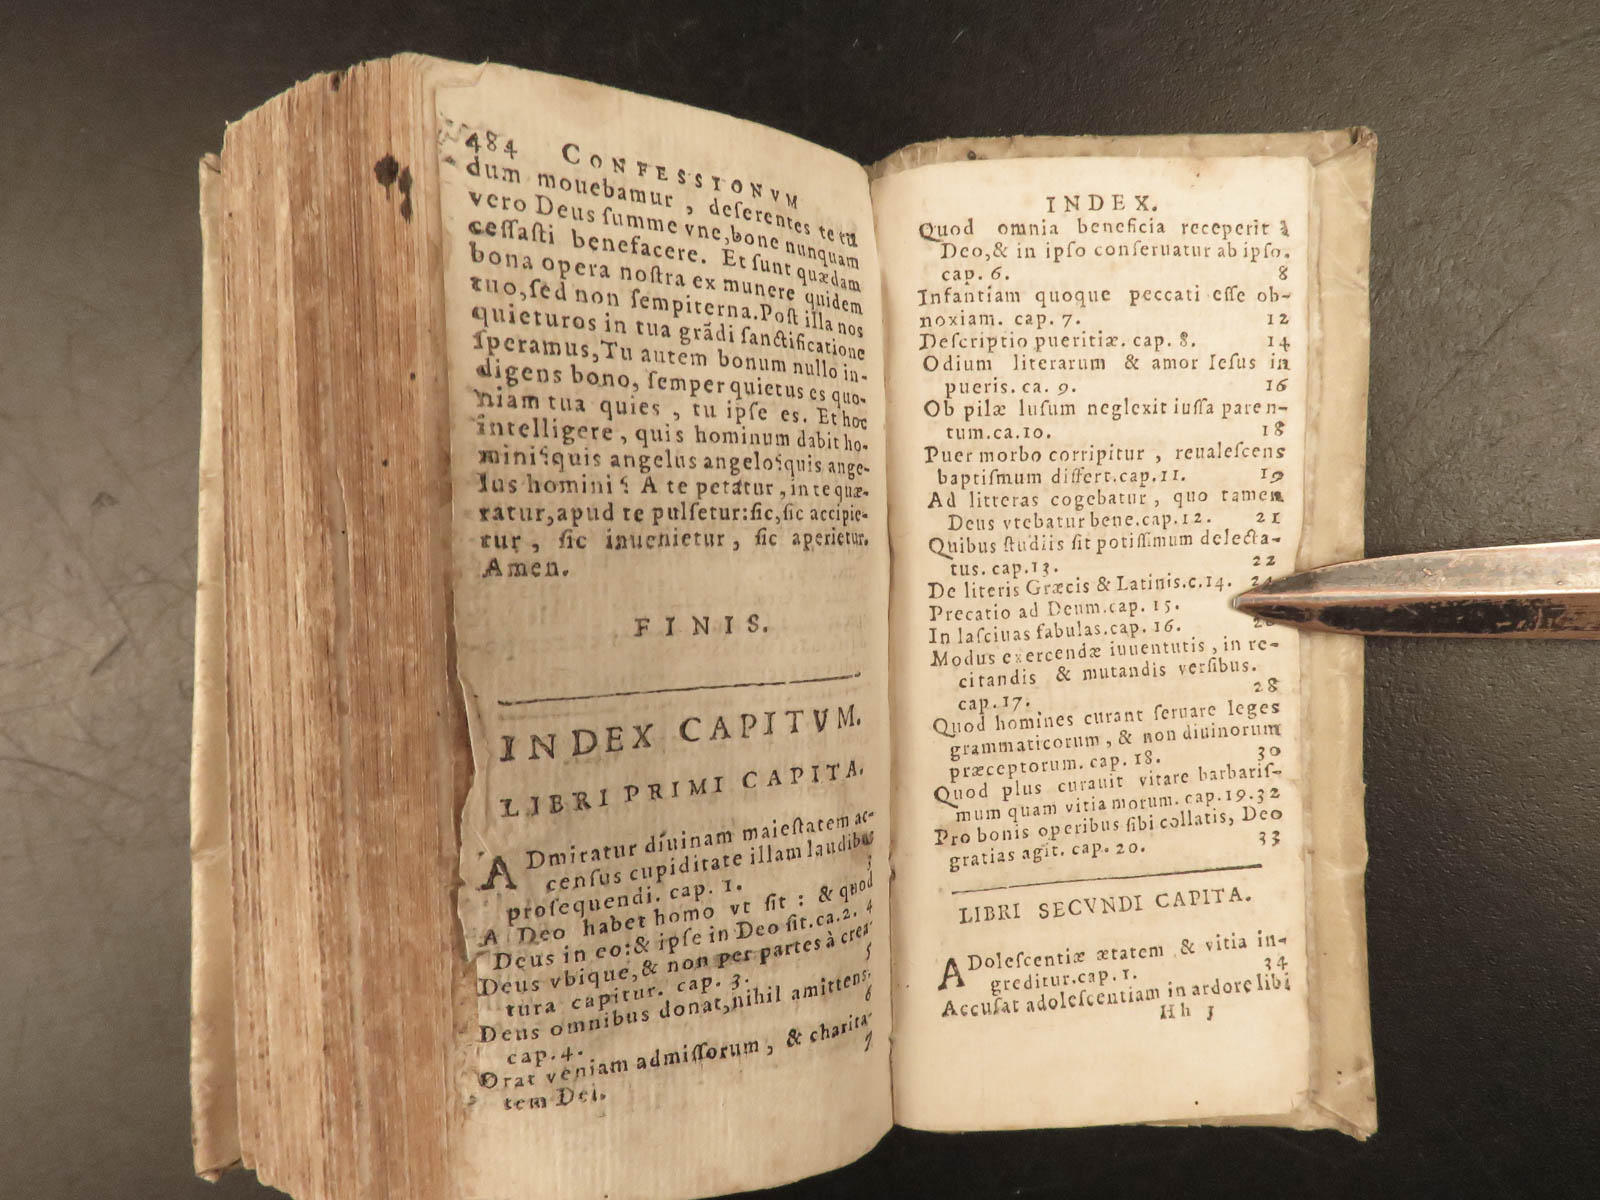 484 CONFESSIONVM
dum mouebamur, deſerentes te tu
vero Deus ſumme vne, bone nunquam
ceſſaſti benefacere. Et ſunt quædam
bona opera noſtra ex munere quidem
tuo, ſed non ſempiterna. Poſt illa nos
quieturos in tua grãdi ſanctificatione
ſperamus, Tu autem bonum nullo in-
digens bono, ſemper quietus es quo-
niam tua quies, tu ipſe es. Et hoc
intelligere, quis hominum dabit ho-
mini? quis angelus angelo? quis ange-
lus homini? A te petatur, in te quæ-
ratur, apud te pulſetur: ſic, ſic accipie-
tur, ſic inuenietur, ſic aperietur.
Amen.
FINIS.
INDEX CAPITVM.
LIBRI PRIMI CAPITA.
ADmiratur diuinam maieſtatem ac-
cenſus cupiditate illam laudibus
proſequendi. cap. 1. 3
A Deo habet homo vt ſit: & quod
Deus in eo: & ipſe in Deo ſit. ca. 2. 4
Deus vbique, & non per partes à crea-
tura capitur. cap. 3. 5
Deus omnibus donat, nihil amittens.
cap. 4. 6
Orat veniam admiſſorum, & charita-
tem Dei. 7
INDEX.
Quod omnia beneficia receperit à
Deo, & in ipſo conſeruatur ab ipſo.
cap. 6. 8
Infantiam quoque peccati eſſe ob-
noxiam. cap. 7. 12
Deſcriptio pueritiæ. cap. 8. 14
Odium literarum & amor leſus in
pueris. ca. 9. 16
Ob pilæ luſum neglexit iuſſa paren-
tum. ca. 10. 18
Puer morbo corripitur, reualeſcens
baptiſmum differt. cap. 11. 19
Ad litteras cogebatur, quo tamen
Deus vtebatur bene. cap. 12. 21
Quibus ſtudiis ſit potiſſimum delecta-
tus. cap. 13. 22
De literis Græcis & Latinis. c. 14. 24
Precatio ad Deum. cap. 15.
In laſciuas fabulas. cap. 16.
Modus exercendæ iuuentutis, in re-
citandis & mutandis verſibus.
cap. 17. 28
Quod homines curant ſeruare leges
grammaticorum, & non diuinorum
præceptorum. cap. 18. 30
Quod plus curauit vitare barbariſ-
mum quam vitia morum. cap. 19. 32
Pro bonis operibus ſibi collatis, Deo
gratias agit. cap. 20. 33
LIBRI SECVNDI CAPITA.
ADoleſcentiæ ætatem & vitia in-
greditur. cap. 1. 34
Accuſat adoleſcentiam in ardore libi
Hh 3